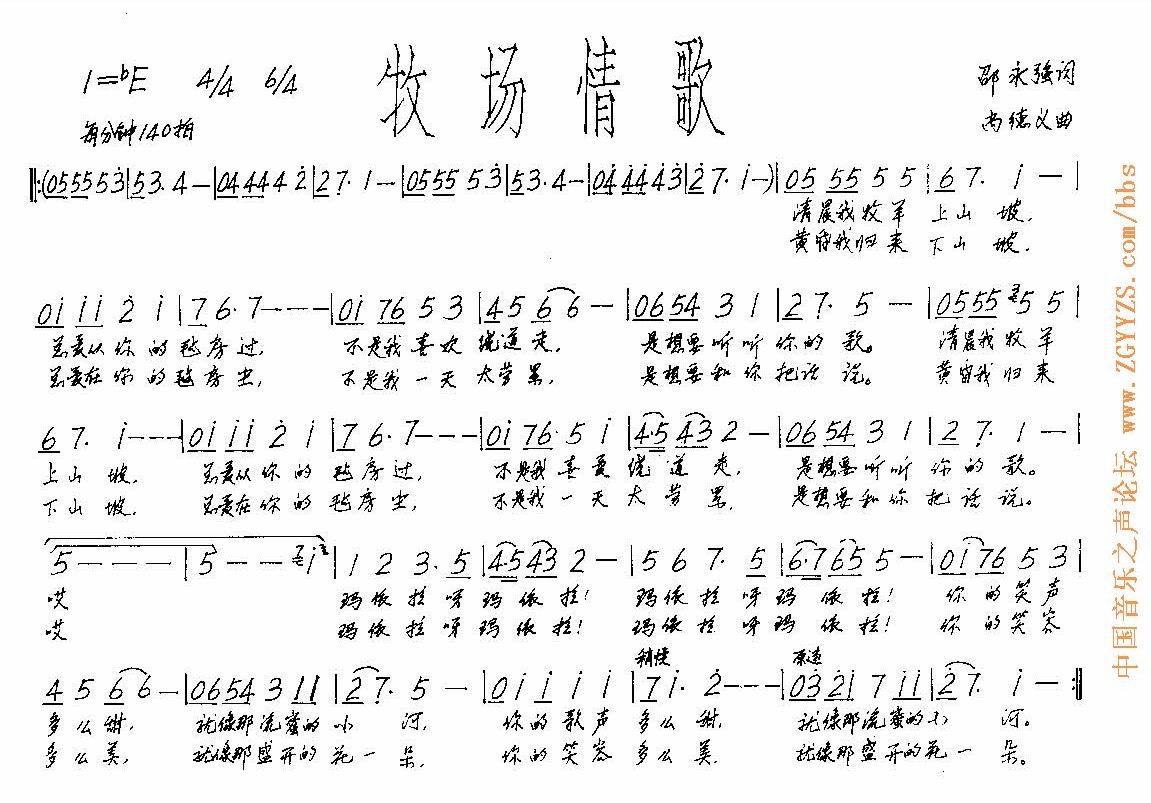 牧场情歌
1=♭E 4/4 6/4
每分钟140拍
邵永强词
尚德义曲
‖:(05555 3̇|5 3. 4 —|04444 2̇|2 7. 1 —|05555 3̇|5 3. 4 —|04̇4̇4̇4̇3̇|2̇ 7. i —)|05 55 5 5|6 7. i —|
清晨我牧羊 上山 坡,
黄昏我归来 下山 坡,
0i ii 2̇ i|7 6. 7 — — —|0i 76 5 3|4 5 6 6 —|0654 3 1|2 7. 5 —|0555 5 5|
总爱从你的毡房过, 不是我喜欢绕道走, 是想要听听你的歌。 清晨我牧羊
总爱在你的毡房坐, 不是我一天太劳累, 是想要和你把话说。 黄昏我归来
6 7. i — — —|0i ii 2̇ i|7 6. 7 — — —|0i 76. 5 i|4.5 43 2 —|0654 3 1|2 7. 1 —|
上山坡, 总爱从你的毡房过, 不是我喜爱绕道走, 是想要听听你的歌。
下山坡, 总爱在你的毡房坐, 不是我一天太劳累, 是想要和你把话说。
5 — — —|5 — — i|1 2 3. 5|4.5 43 2 —|5 6 7. 5|6.7 65 5 —|0i 76 5 3|
哎 玛依拉呀玛依拉! 玛依拉呀玛依拉! 你的笑声
哎 玛依拉呀玛依拉! 玛依拉呀玛依拉! 你的笑容
稍慢 原速
4 5 6 6 —|0654 3 11|2 7. 5 —|0i i i i|7 i. 2̇ — — —|03̇ 2̇i 7 ii|2̇ 7. i —:‖
多么甜, 就像那流蜜的小河, 你的歌声多么甜, 就像那流蜜的小河。
多么美, 就像那盛开的花一朵, 你的笑容多么美, 就像那盛开的花一朵。
中国音乐之声论坛 www.ZGYYZS.com/bbs